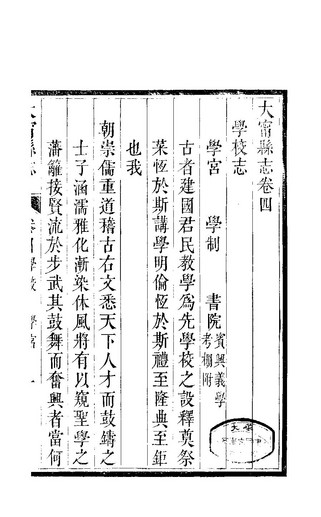 大甯縣志卷四
學校志
學宮 學制 書院 賓興義學 考棚附
古者建國君民教學爲先學校之設釋奠祭
菜恆於斯講學明倫恆於斯禮至隆典至鉅
也我
朝崇儒重道稽古右文悉天下人才而鼓鑄之
士子涵濡雅化漸染休風將有以窺聖學之
藩籬接賢流於步武其鼓舞而奮興者當何
大甯縣志 卷四學校 學宮 一